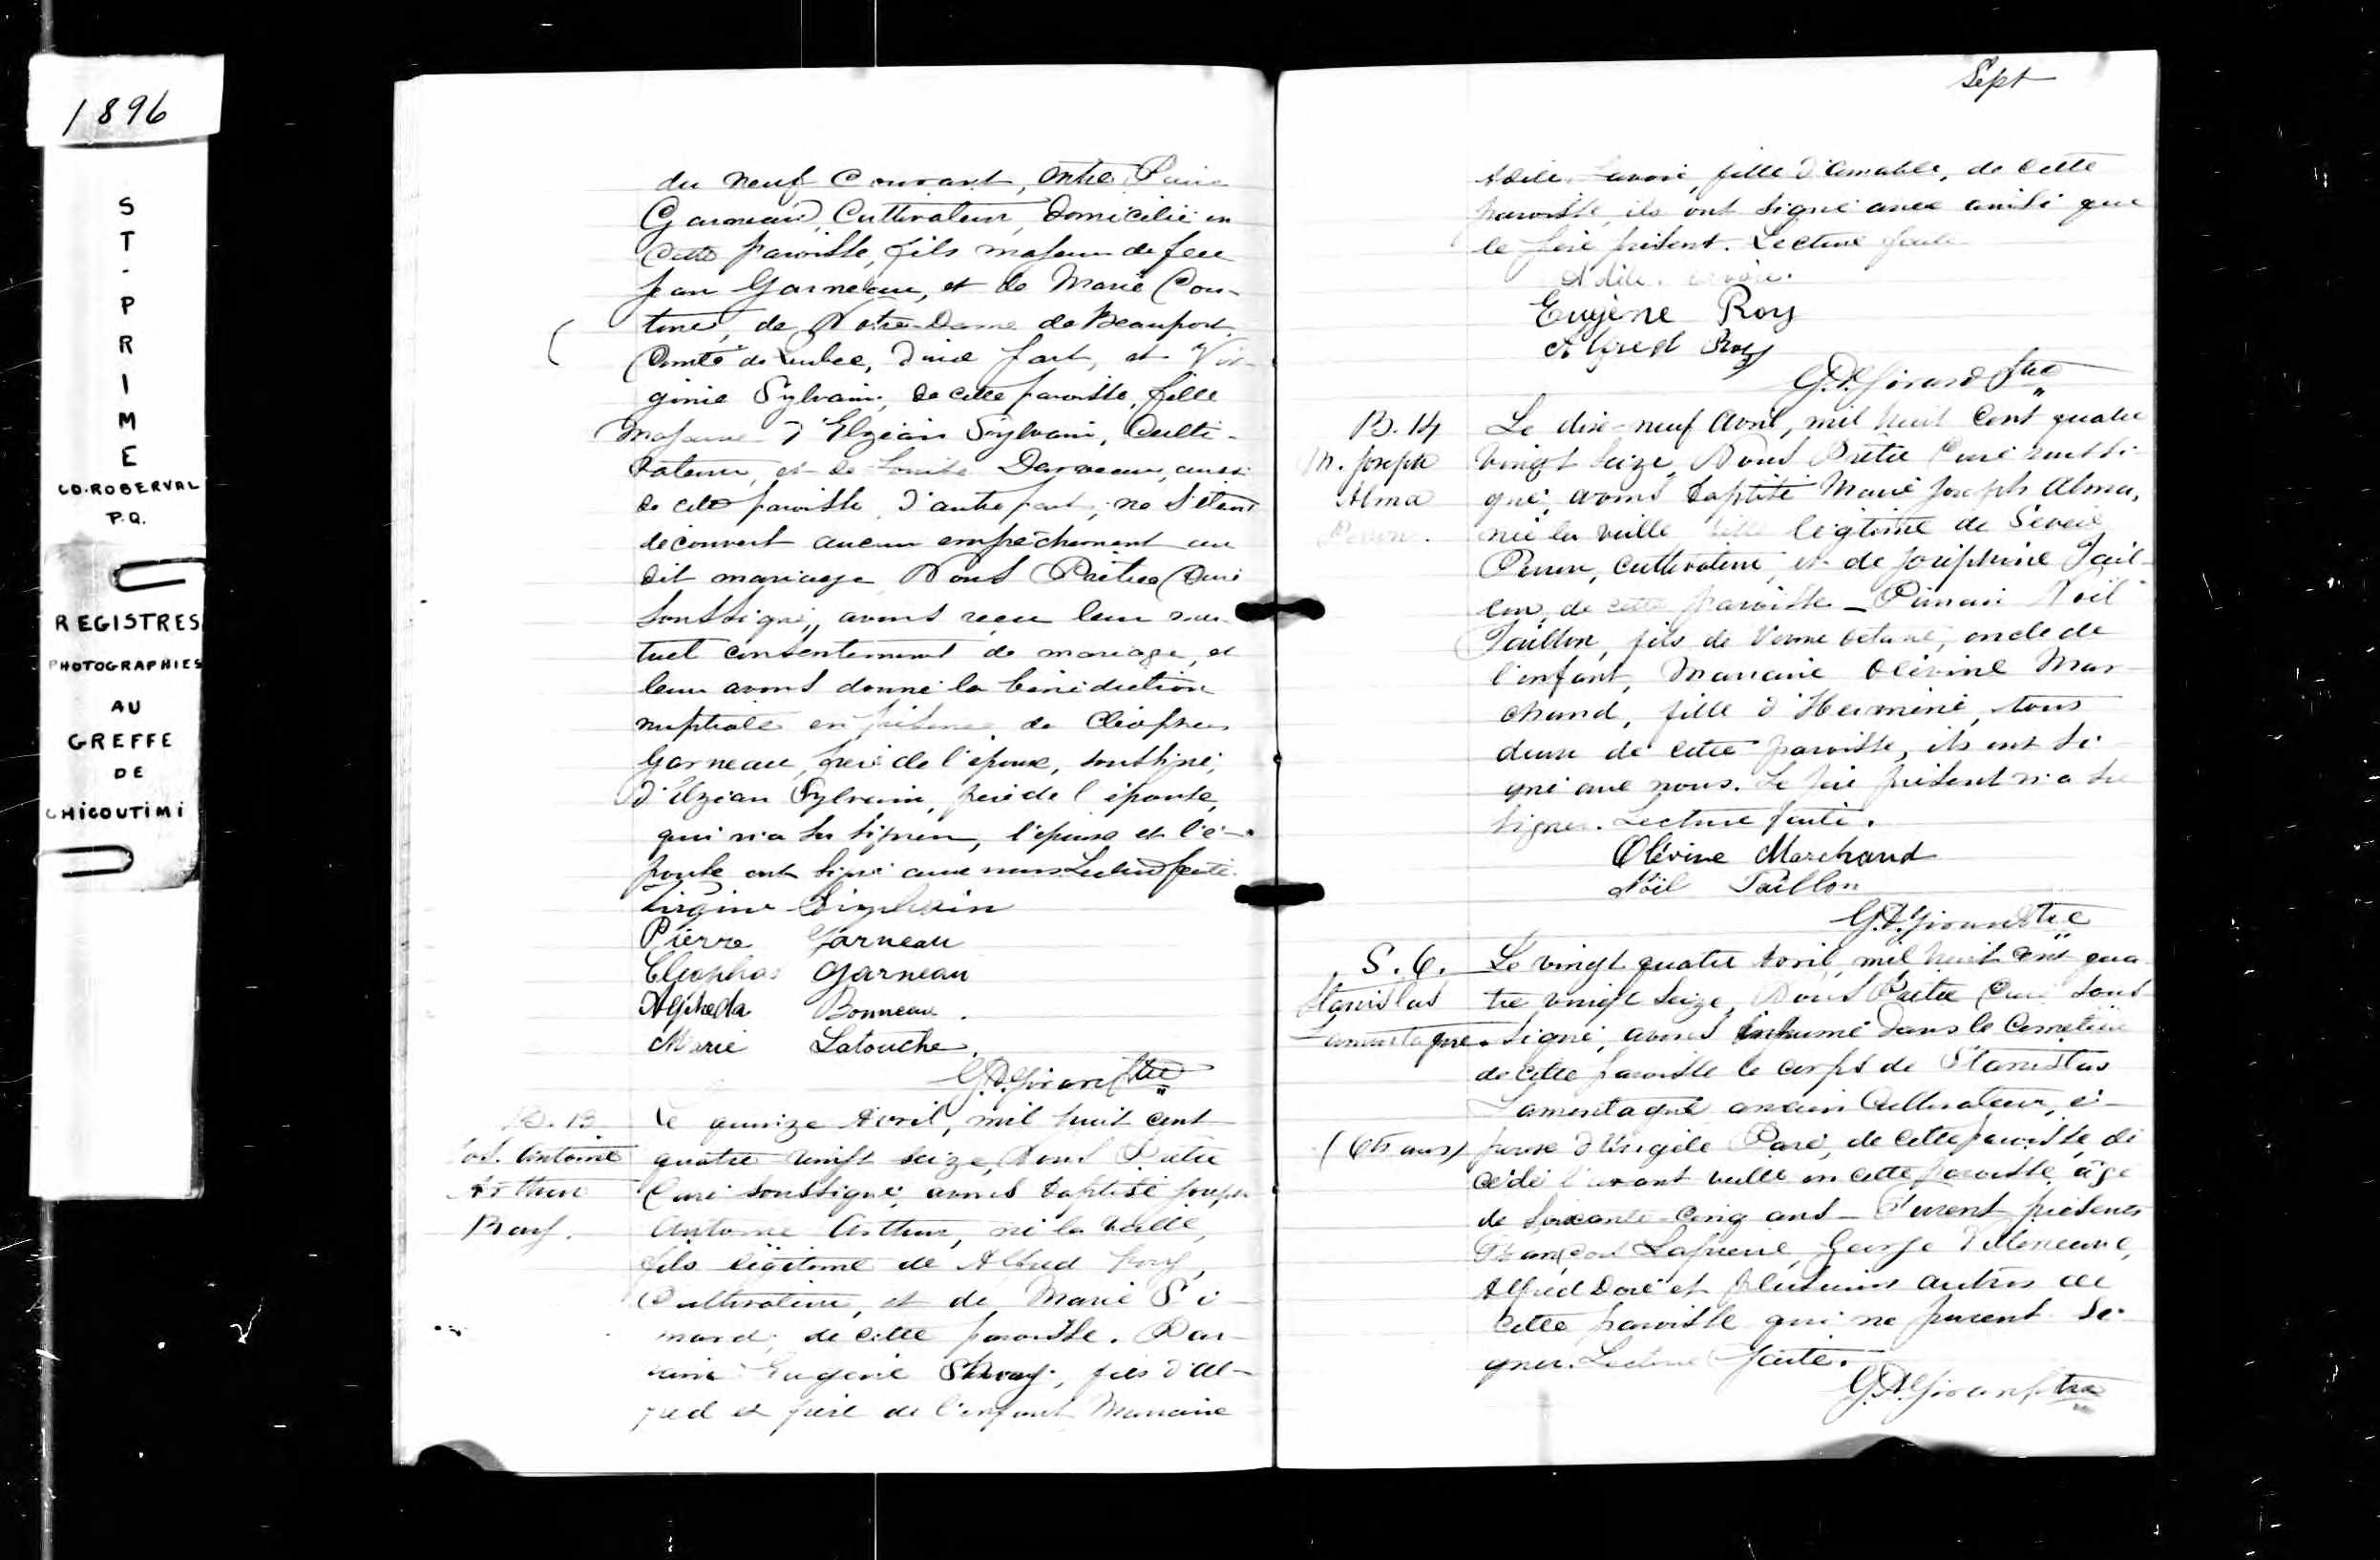 1896
ST-PRIME
CO. ROBERVAL
P.Q.
REGISTRES
PHOTOGRAPHIES
AU
GREFFE
DE
CHICOUTIMI
du neuf Courant, entre
Garneau, Cultivateur, domicilié en
cette paroisse, fils majeur de feu
Jean Garneau, et de Marie Cou-
ture, de Notre-Dame de Beauport,
Comté de Québec, d'une part, et Vir-
ginie Sylvain, de cette paroisse, fille
majeure d'Elzéar Sylvain, Culti-
vateur, et de Louise Darveau, aussi
de cette paroisse, d'autre part; ne s'étant
découvert aucun empêchement au
dit mariage Nous Prêtre Curé
soussigné, avons reçu leur mu-
tuel consentement de mariage, et
leur avons donné la bénédiction
nuptiale en présence de Cléophas
Garneau, frère de l'époux, soussigné,
d'Elzéar Sylvain, père de l'épouse,
qui n'a su signer, l'époux et l'é-
pouse ont signé avec nous. Lecture faite.
Pierre Garneau
Cléophas Garneau
Bonneau.
Marie Latouche.
G.D. Girard Ptre
B. 13
Jos. Antoine
Arthur
Roy.
Le quinze Avril, mil huit cent
quatre vingt seize, Nous Prêtre
Curé soussigné, avons baptisé Joseph
Antoine Arthur, né la veille,
fils légitime de Alfred Roy,
Cultivateur, et de Marie Si-
mard, de cette paroisse. Par-
rain Eugène Roy, fils d'Al-
fred et frère de l'enfant Marraine
Sept
Adèle Savoie, fille d'Amable, de cette
paroisse, ils ont signé avec ainsi que
le père présent. Lecture faite
Adèle Savoie.
Eugène Roy
Alfred Roy
G.D. Girard Ptre
B. 14
M. Joseph
Alma
Perron.
Le dix-neuf Avril, mil huit cent quatre
vingt seize, Nous Prêtre Curé soussi-
gné, avons baptisé Marie Joseph Alma,
née la veille fille légitime de
Perron, cultivateur, et de Joséphine Tail-
lon, de cette paroisse - Parrain Noël
Taillon, fils de oncle de
l'enfant, Marraine Olévine Mar-
chand, fille d'Herméné, tous
deux de cette paroisse, ils ont si-
gné avec nous. Le père présent n'a su
signer. Lecture faite.
Olévine Marchand
Noël Taillon
G.D. Girard Ptre
S. 6.
Stanislas
Lamontagne.
(65 ans)
Le vingt quatre Avril, mil huit cent qua-
tre vingt seize, Nous Prêtre Curé sous-
signé, avons inhumé dans le Cimetière
de cette paroisse le corps de Stanislas
Lamontagne ancien Cultivateur, é-
poux d'Angèle Paré, de cette paroisse, dé-
cédé l'avant veille en cette paroisse, âgé
de soixante-cinq ans - Furent présents
François George Villeneuve,
Alfred Doré et plusieurs autres de
cette paroisse qui ne purent si-
gner. Lecture faite.
G.D. Girard Ptre